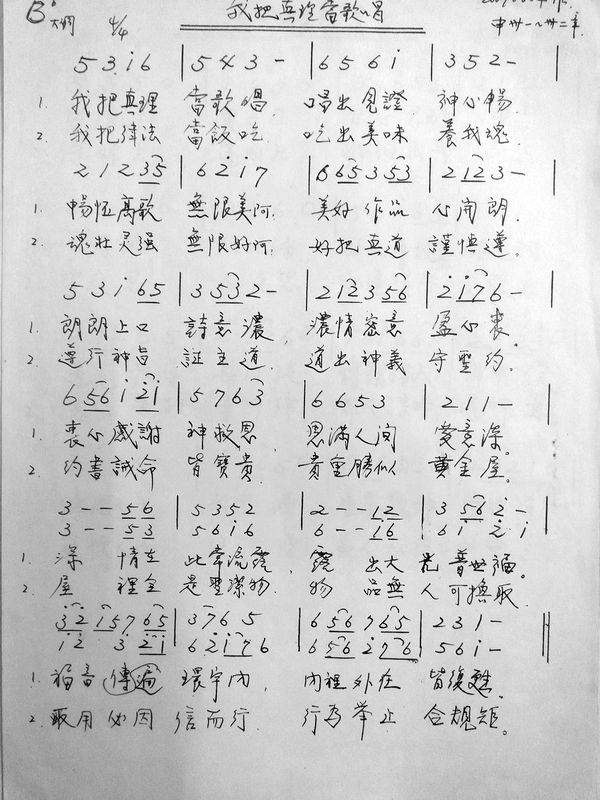 我把真理當歌唱
B♭大調 4/4
5 3 i 6 | 5 4 3 - | 6 5 6 i | 3 5 2 - |
1. 我把真理 當歌唱 唱出見證 神心暢
2. 我把律法 當飯吃 吃出美味 養我魂
2 1 2 35 | 6 2̇ i 7 | 6 65 3 53 | 2 12 3 - |
1. 暢恆高歌 無限美阿. 美好作品 心開朗.
2. 魂壯灵强 無限好阿. 好把真道 謹慎遵。
5 3 i 65 | 3 53 2 - | 2 12 3 56 | 2̇ i76 - |
1. 朗朗上口 詩意濃, 濃情密意 盈心衷.
2. 遵行神旨 証主道. 道出神義 守聖約.
6 56 i 2̇i | 5 7 6 3 | 6 6 5 3 | 2 1 1 - |
1. 衷心感謝 神救恩, 恩滿人间 愛意深。
2. 约書誡命 皆寶貴. 貴重勝似 黄金屋。
3 - - 56 | 5 3 5 2 | 2 - - 12 | 3 56 2̇ - |
3 - - 53 | 5 6 i 6 | 6 - - 16 | 6 i 2̇ i |
1. 深 情在 此常流露 露 出大光 普世福。
2. 屋 裡全 是聖潔物. 物 品無人 可換取
3̇2̇ i5 7 65 | 3 7 6 5 | 6 56 7 65 | 2 3 1 - ‖
i 2̇ 3 2̇i | 6 2̇i 7 6 | 6 56 2̇ 76 | 5 6 i - ‖
1. 福音傳遍 環宇内, 内裡外在 皆復甦。
2. 取用必因 信而行. 行為举止 合規矩。